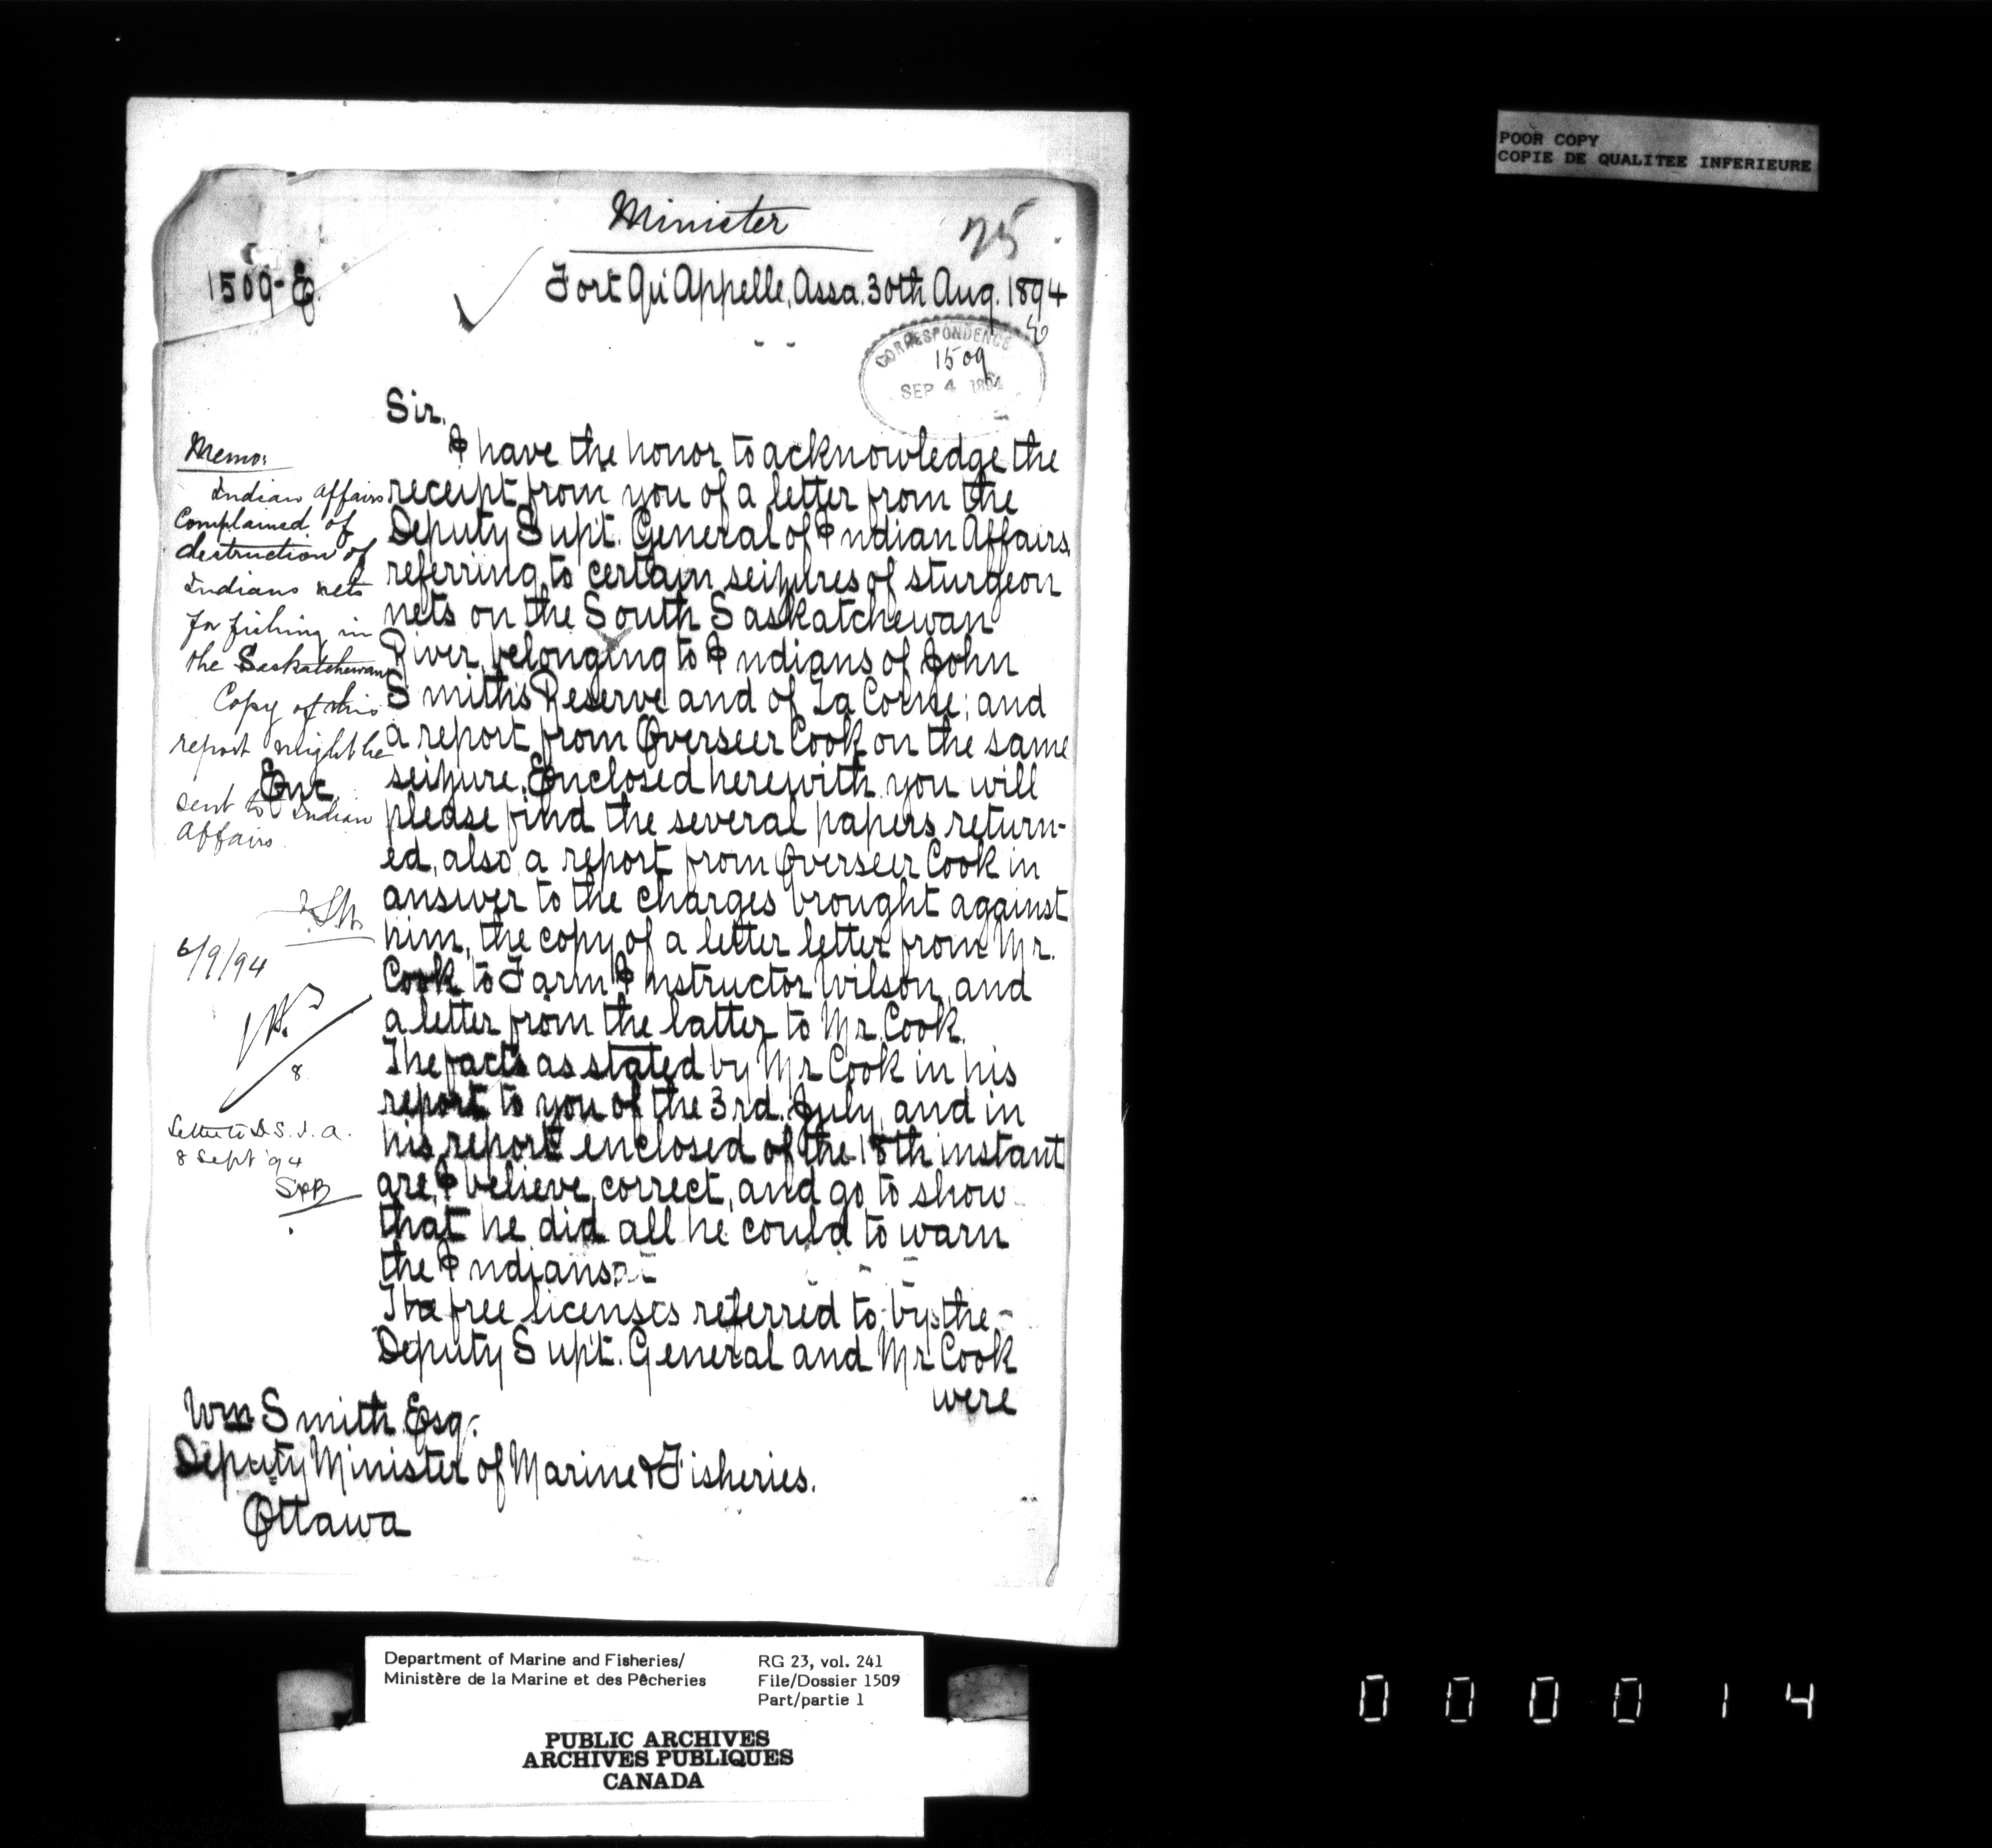 POOR COPY
COPIE DE QUALITEE INFERIEURE
Minister
25
1509-E.
Fort Qu'Appelle, Assa. 30th Aug. 1894
CORRESPONDENCE
1509
SEP 4 1894
Sir,
I have the honor to acknowledge the
receipt from you of a letter from the
Deputy Supt. General of Indian Affairs,
referring to certain seizures of sturgeon
nets on the South Saskatchewan
River, belonging to Indians of John
Smith's Reserve and of La Corne; and
a report from Overseer Cook on the same
seizure. Enclosed herewith you will
please find the several papers return-
ed, also a report from Overseer Cook in
answer to the charges brought against
him, the copy of a letter letter from Mr.
Cook to Farm Instructor Wilson, and
a letter from the latter to Mr. Cook.
The facts as stated by Mr Cook in his
report to you of the 3rd. July, and in
his report enclosed of the 18th instant
are, I believe, correct, and go to show
that he did all he could to warn
the Indians.
The free licenses referred to by the
Deputy Supt. General and Mr Cook
were
Memo:
Indian Affairs
Complained of
destruction of
Indians nets
for fishing in
the Saskatchewan
Copy of this
report might be
Enc.
sent to Indian
Affairs.
6/9/94
8
Letter to D.S.I.A.
8 Sept '94
Wm Smith Esq.
Deputy Minister of Marine & Fisheries.
Ottawa
Department of Marine and Fisheries/
Ministère de la Marine et des Pêcheries
RG 23, vol. 241
File/Dossier 1509
Part/partie 1
PUBLIC ARCHIVES
ARCHIVES PUBLIQUES
CANADA
000014